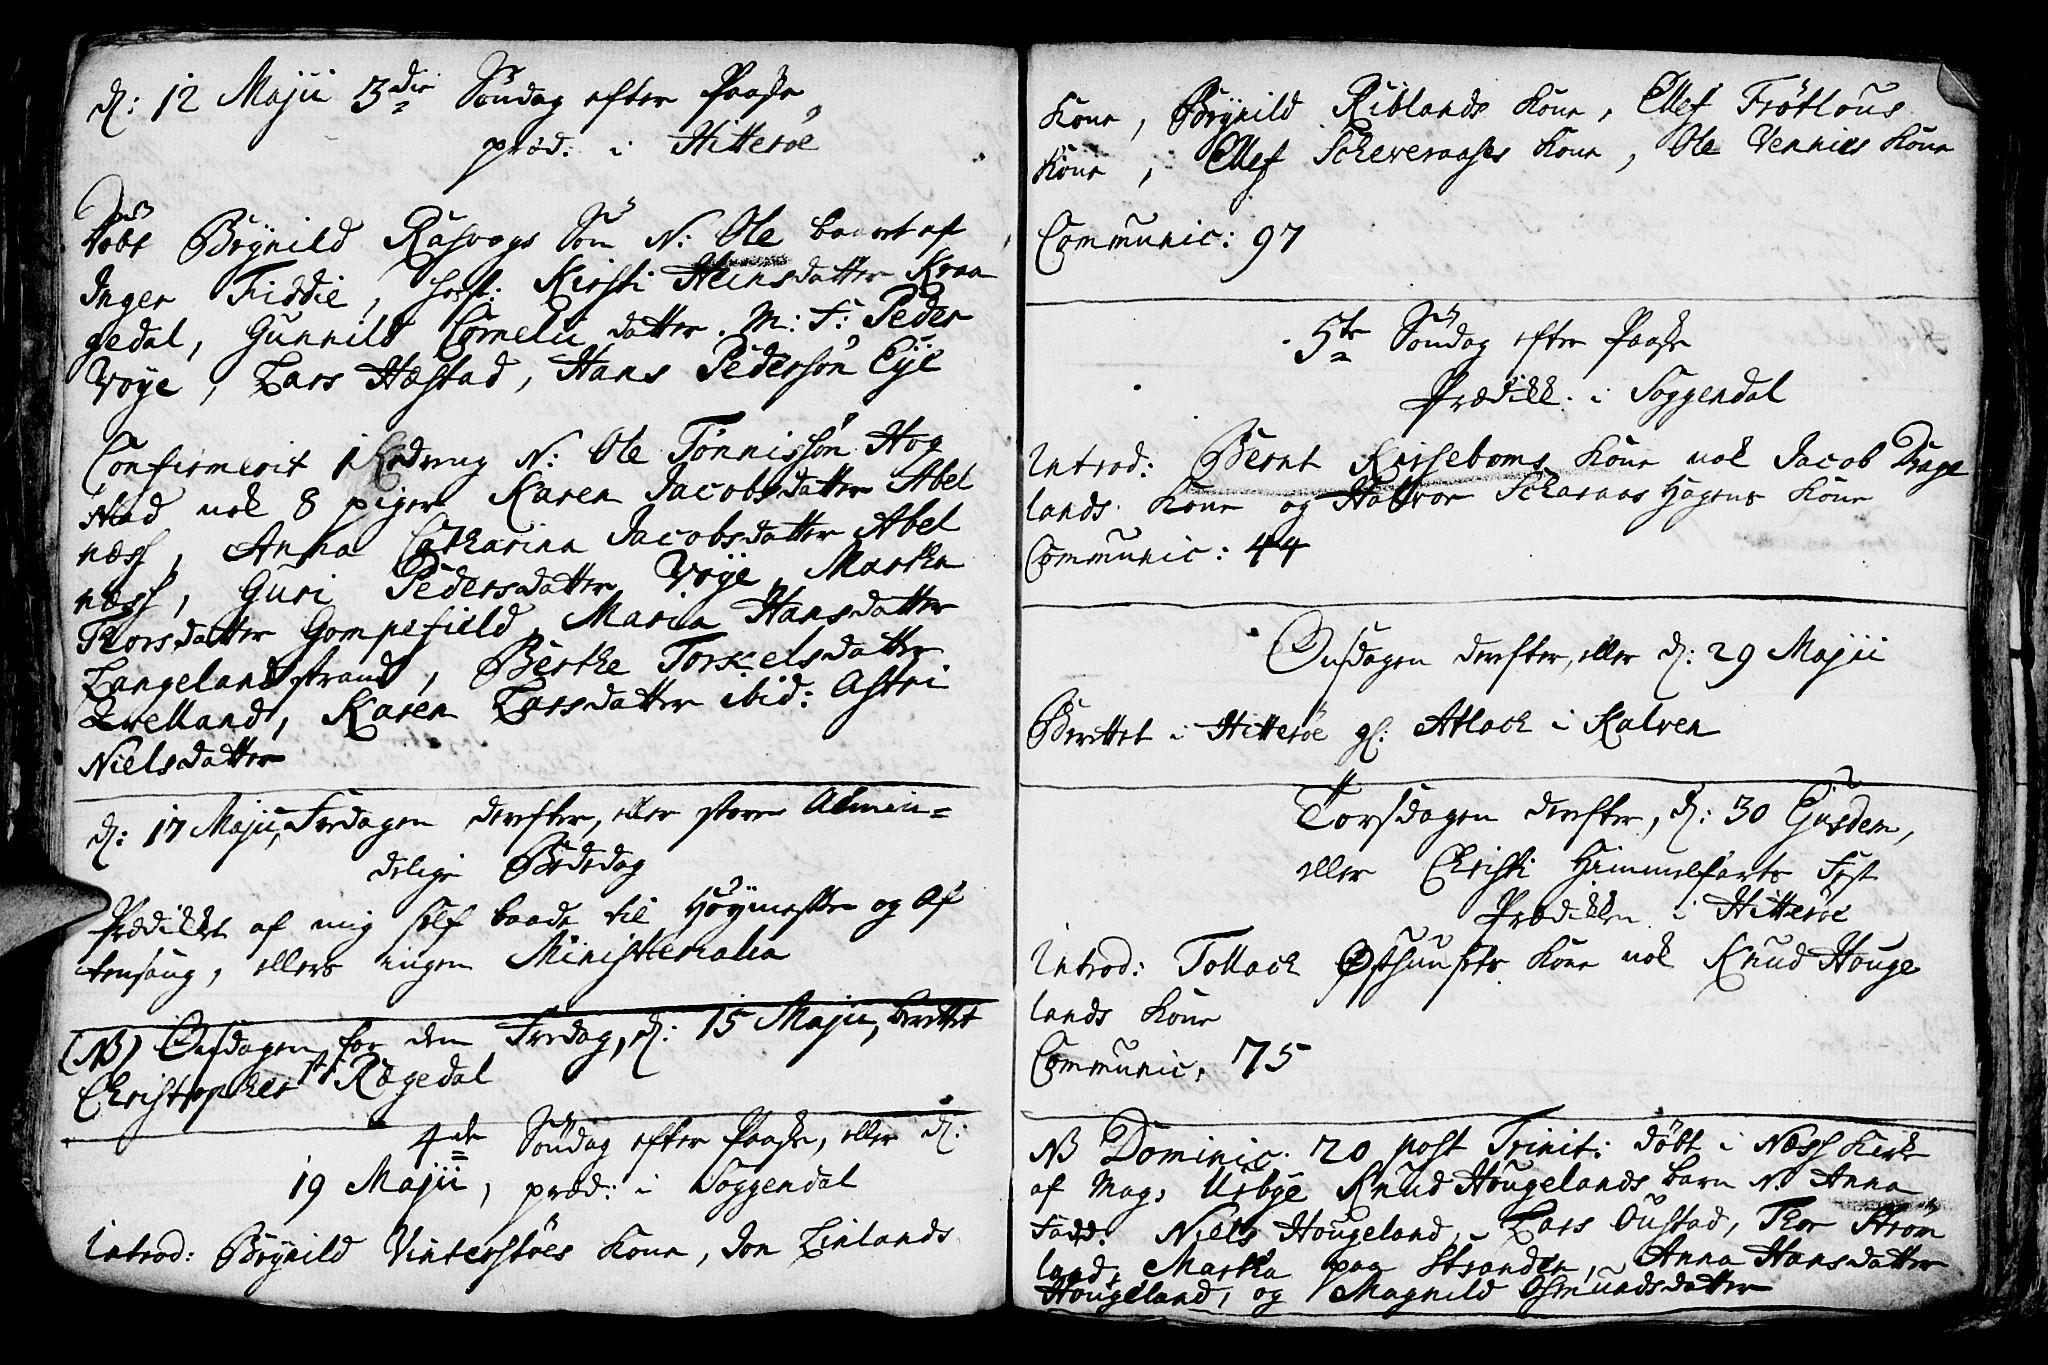 d: 12 Majii 3die Söndag efter Paaske
præd: i Hitteröe
Döbt Brynild Rasvogs Sön N: Ole baaret af
Inger Fiddie, Kirsti Heinsdatter Kraa
gedal, Gunnild Cornelii datter. M: F: Peder
Vöye, Lars Hæstad, Hans Pedersön Eÿe
Confirmerit 1 N: Ole Tönnissön Hog
stad nok 8 piger Karen Jacobsdatter Abel
næss, Anna Catharina Jacobsdatter Abel
næss, Guri Pedersdatter Vöye, Martha
Thorsdatter Gompefield, Maria Hansdatter
Langelandstrand, Berthe Torkelsdatter
Qvelland, Karen Larsdatter ibid: Astri
Nielsdatter
d: 17 Majii, Fredagen derefter, eller store Almin=
delige Bededag
Prædiket af mig self baade til Höymesse og Af
tensang, ellers ingen Ministerialia
(NB) Onsdagen for dem Fredag, d: 15 Majii, berettet
Christopher Rægedal
4de Söndag efter Paaske, eller d:
19 Majii, præd: i Soggendal
Introd: Brynild Vinterstöes Kone, Jon Linlands
Kone, Brynild Riblands Kone, Ellef Frötlous
Kone, Ellef Schereraases Kone, Ole Vennies Kone
Communic: 97
5te Söndag efter Paaske
Prædikk. i Soggendal
Introd: Bernt Kirseboms Kone nok Jacob Drage
lands Kone og Halvor Scharaas Hagens Kone
Communic: 44
Onsdagen derefter, eller d: 29 Majii
Berettet i Hitteröe gl: Atlack i Kalven
Torsdagen derefter, d: 30 Ejusdem,
eller Christi Himmelfarts Fest
Prædikken i Hitteröe
Introd: Tollack Østhuuses Kone nok Knud Houge
lands Kone
Communic. 75
NB Dominic. 20 post Trinit: döbt i Næss Kirke
af Mag: Urbye Knud Hougelands barn N. Anna
Fadd: Niels Hougeland, Lars Oustad, Thor Strom
land, Martha paa Stranden, Anna Hansdatter
Hougeland, og Magnild Osmundsdatter